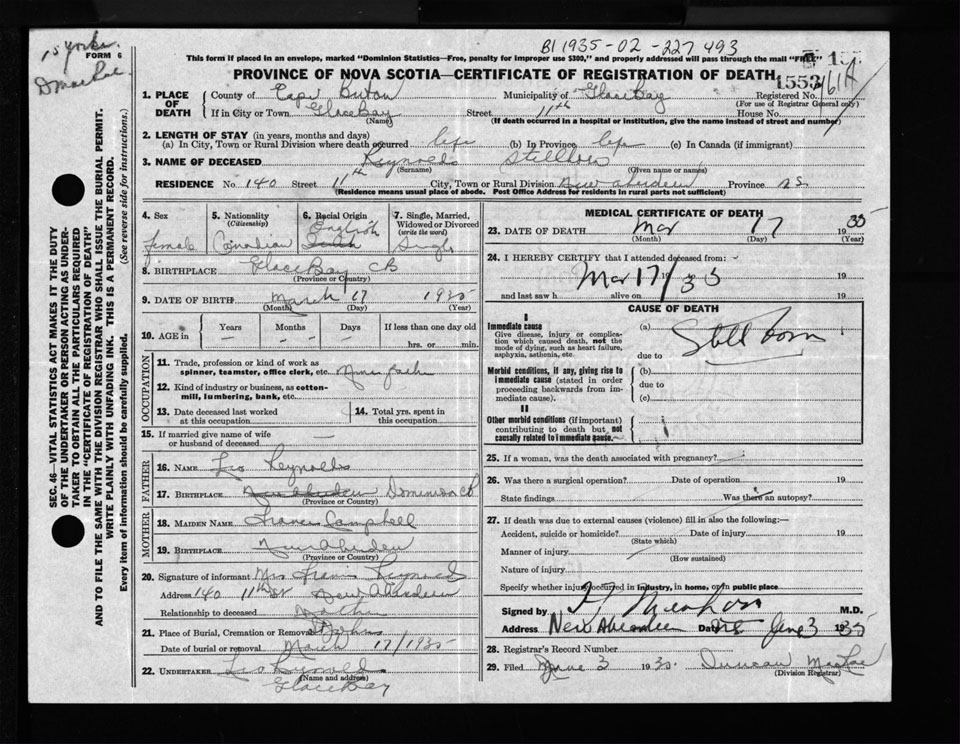 BI 1935-02-227493
15 yorke.
D MacRae
FORM 6
This form if placed in an envelope, marked "Dominion Statistics—Free, penalty for improper use $300," and properly addressed will pass through the mail "FREE"
PROVINCE OF NOVA SCOTIA—CERTIFICATE OF REGISTRATION OF DEATH
1553
1. PLACE OF DEATH
County of Cape Breton Municipality of Glace Bay Registered No.
(For use of Registrar General only)
If in City or Town Glace Bay (Name) Street 11th House No.
(If death occurred in a hospital or institution, give the name instead of street and number)
2. LENGTH OF STAY (in years, months and days)
(a) In City, Town or Rural Division where death occurred life (b) In Province life (c) In Canada (if immigrant)
3. NAME OF DECEASED Reynolds (Surname) Stillborn (Given name or names)
RESIDENCE No. 140 Street 11th City, Town or Rural Division New Aberdeen Province NS
(Residence means usual place of abode. Post Office Address for residents in rural parts not sufficient)
4. Sex
female
5. Nationality (Citizenship)
Canadian
6. Racial Origin
English
7. Single, Married, Widowed or Divorced (write the word)
Single
8. BIRTHPLACE Glace Bay CB
(Province or Country)
9. DATE OF BIRTH March 17 1935
(Month) (Day) (Year)
10. AGE in Years Months Days If less than one day old
hrs. or min.
OCCUPATION
11. Trade, profession or kind of work as spinner, teamster, office clerk, etc.
12. Kind of industry or business, as cotton-mill, lumbering, bank, etc.
13. Date deceased last worked at this occupation
14. Total yrs. spent in this occupation
15. If married give name of wife or husband of deceased
FATHER
16. NAME Leo Reynolds
17. BIRTHPLACE New Aberdeen Dominion CB
(Province or Country)
MOTHER
18. MAIDEN NAME Frances Campbell
19. BIRTHPLACE New Aberdeen
(Province or Country)
20. Signature of informant Mrs
Address 140 11th St New Aberdeen
Relationship to deceased
21. Place of Burial, Cremation or Removal
Date of burial or removal March 17/1935
22. UNDERTAKER Leo Reynolds
(Name and address)
Glace Bay
MEDICAL CERTIFICATE OF DEATH
23. DATE OF DEATH Mar 17 1935
(Month) (Day) (Year)
24. I HEREBY CERTIFY that I attended deceased from:
Mar 17/35 19
and last saw h alive on 19
CAUSE OF DEATH
I
Immediate cause
Give disease, injury or complication which caused death, not the mode of dying, such as heart failure, asphyxia, asthenia, etc.
(a) Still born
due to
Morbid conditions, if any, giving rise to immediate cause (stated in order proceeding backwards from immediate cause).
(b)
due to
(c)
II
Other morbid conditions (if important) contributing to death but not causally related to immediate cause.
25. If a woman, was the death associated with pregnancy?
26. Was there a surgical operation? Date of operation 19
State findings Was there an autopsy?
27. If death was due to external causes (violence) fill in also the following:—
Accident, suicide or homicide? Date of injury 19
(State which)
Manner of injury
(How sustained)
Nature of injury
Specify whether injury occurred in industry, in home, or in public place
Signed by M.D.
Address New Aberdeen Date June 3 1935
28. Registrar's Record Number
29. Filed June 3 1935 Duncan MacRae
(Division Registrar)
SEC. 46—VITAL STATISTICS ACT MAKES IT THE DUTY
OF THE UNDERTAKER OR PERSON ACTING AS UNDER-
TAKER TO OBTAIN ALL THE PARTICULARS REQUIRED
IN THE "CERTIFICATE OF REGISTRATION OF DEATH"
AND TO FILE THE SAME WITH THE DIVISION REGISTRAR WHO SHALL ISSUE THE BURIAL PERMIT.
WRITE PLAINLY WITH UNFADING INK. THIS IS A PERMANENT RECORD.
Every item of information should be carefully supplied. (See reverse side for instructions.)